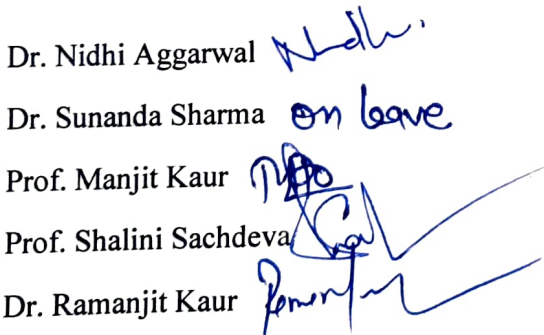 Dr. Nidhi Aggarwal Nidhi.
Dr. Sunanda Sharma on leave
Prof. Manjit Kaur
Prof. Shalini Sachdeva
Dr. Ramanjit Kaur